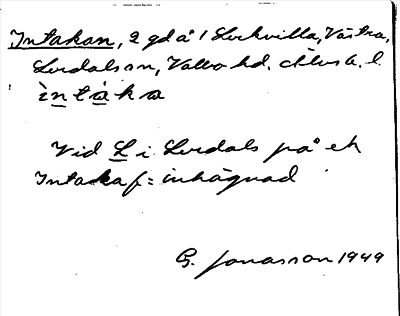 Intakan, 2 gd å 1 Lockvilla, Västra,
Lerdals sn, Valbo hd. Älvsb. l.
ìntàka
Vid L i Lerdals på ek
Intaka f = inhägnad
G. Jonasson 1949